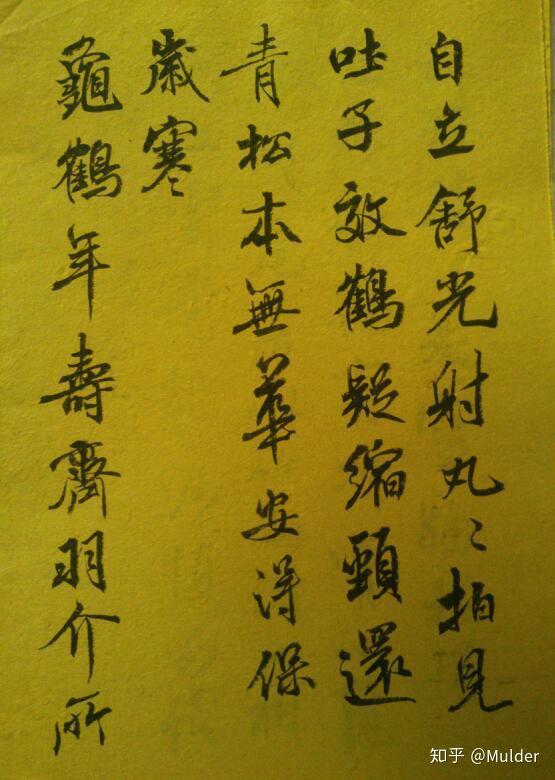 自立舒光射丸〻拍見
吐子效鶴疑縮頸還
青松本無華安得保
歲寒
龜鶴年壽齊羽介所
知乎 @Mulder